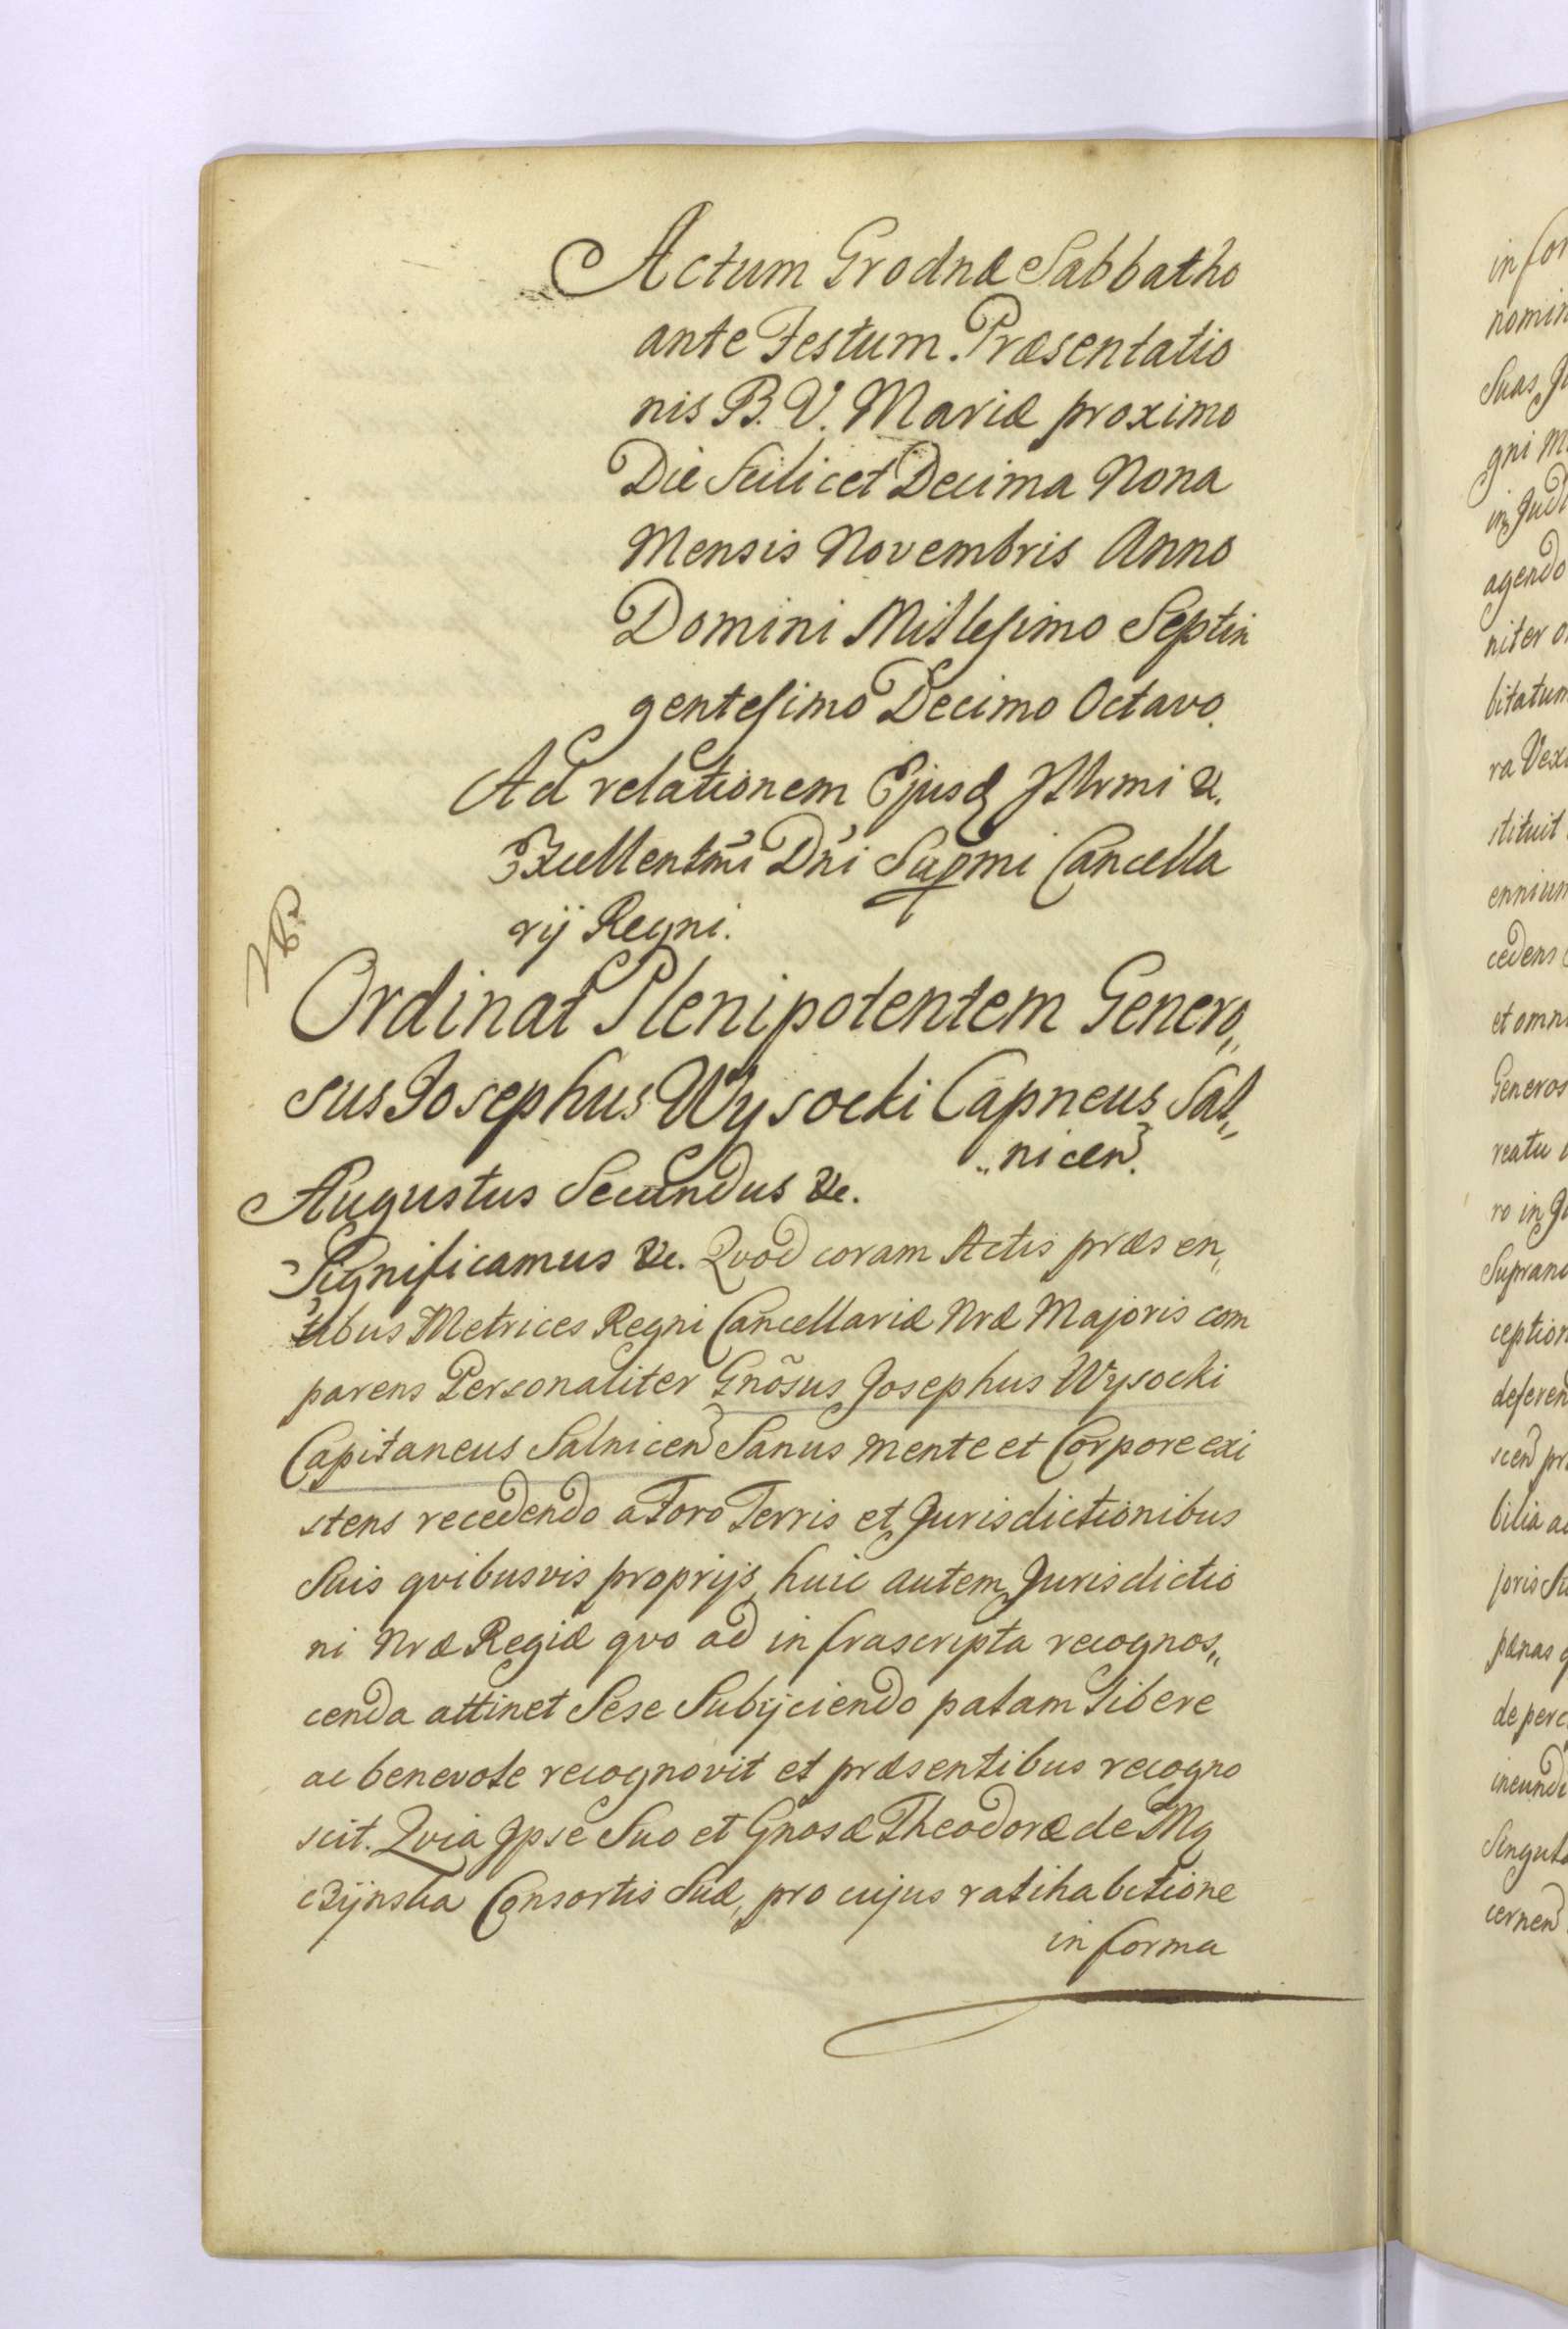 Actum Grodnæ Sabbatho
ante Festum Præsentatio
nis B. V. Mariæ proximo
Die Scilicet Decima Nona
Mensis Novembris Anno
Domini Millesimo Septin
gentesimo Decimo Octavo.
Ad relationem Ejusd Illrmi &.
Excellentmi Dni Supmi Cancella
rij Regni.
Ordinat Plenipotentem Genero,,
sus Josephus Wysocki Capneus Sal,,
,,nicen.
Augustus Secundus &c.
Significamus &c. Qvod coram Actis præsen,,
tibus Metrices Regni Cancellariæ Nræ Majoris com
parens Personaliter Gnõsus Josephus Wysocki
Capitaneus Salnicen Sanus mente et Corpore exi
stens recedendo a Foro Terris et Jurisdictionibus
Suis qvibusvis proprijs, huic autem Jurisdictio
ni Nræ Regiæ qvo ad infrascripta recognos,,
cenda attinet Sese Subijciendo palam libere
ac benevole recognovit et præsentibus recogno
scit. Qvia Ipse Suo et Gnosæ Theodoræ de
Consortis Suæ, pro cujus ratihabitione
in forma
in for
nomin
Suas
gni M
agendo
niter
bitatum
ra Vexi
stituit
ennium
cedens
et omn
Generos
reatu
ro in
Supran
ception
deferen
scen
bilia
joris
pænas
de perc
ineund
Singul
cernen